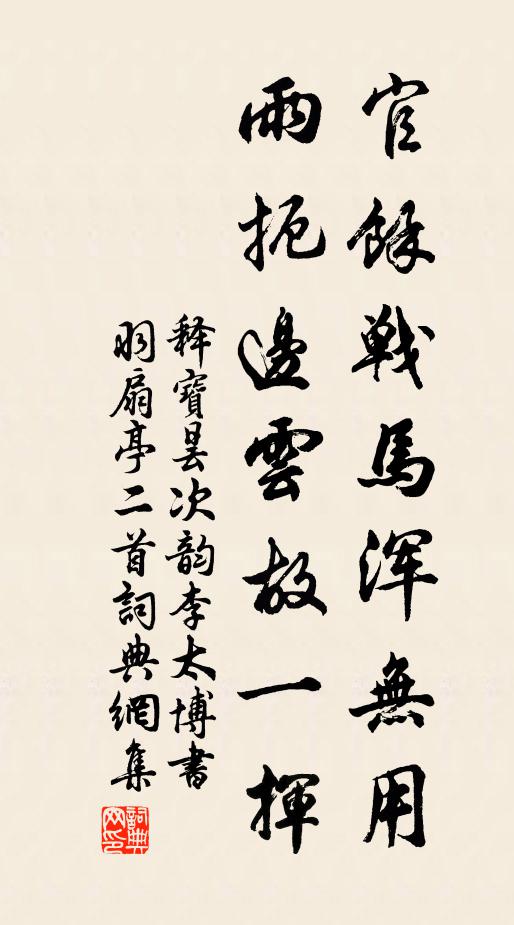 官餘戰馬渾無用
雨扼邊雲故一揮
釋寶曇次韵李太博書
羽扇亭二首詞典網集
詞典
网印